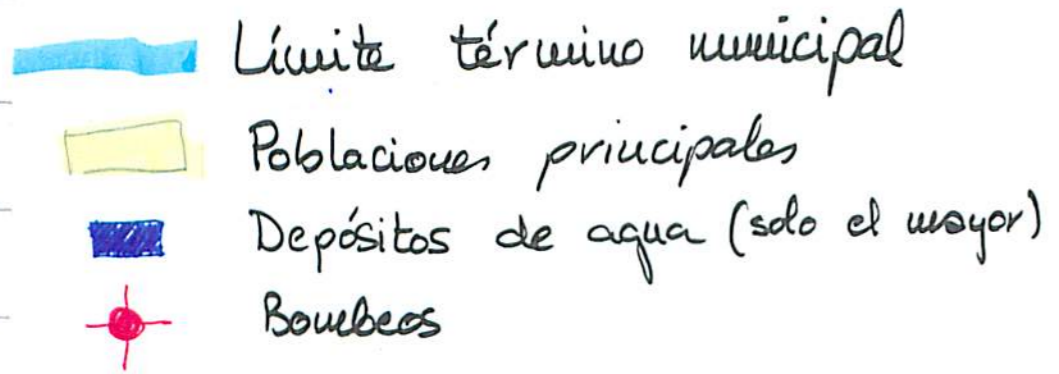 Límite término municipal
Poblaciones principales
Depósitos de agua (solo el mayor)
Bombeos